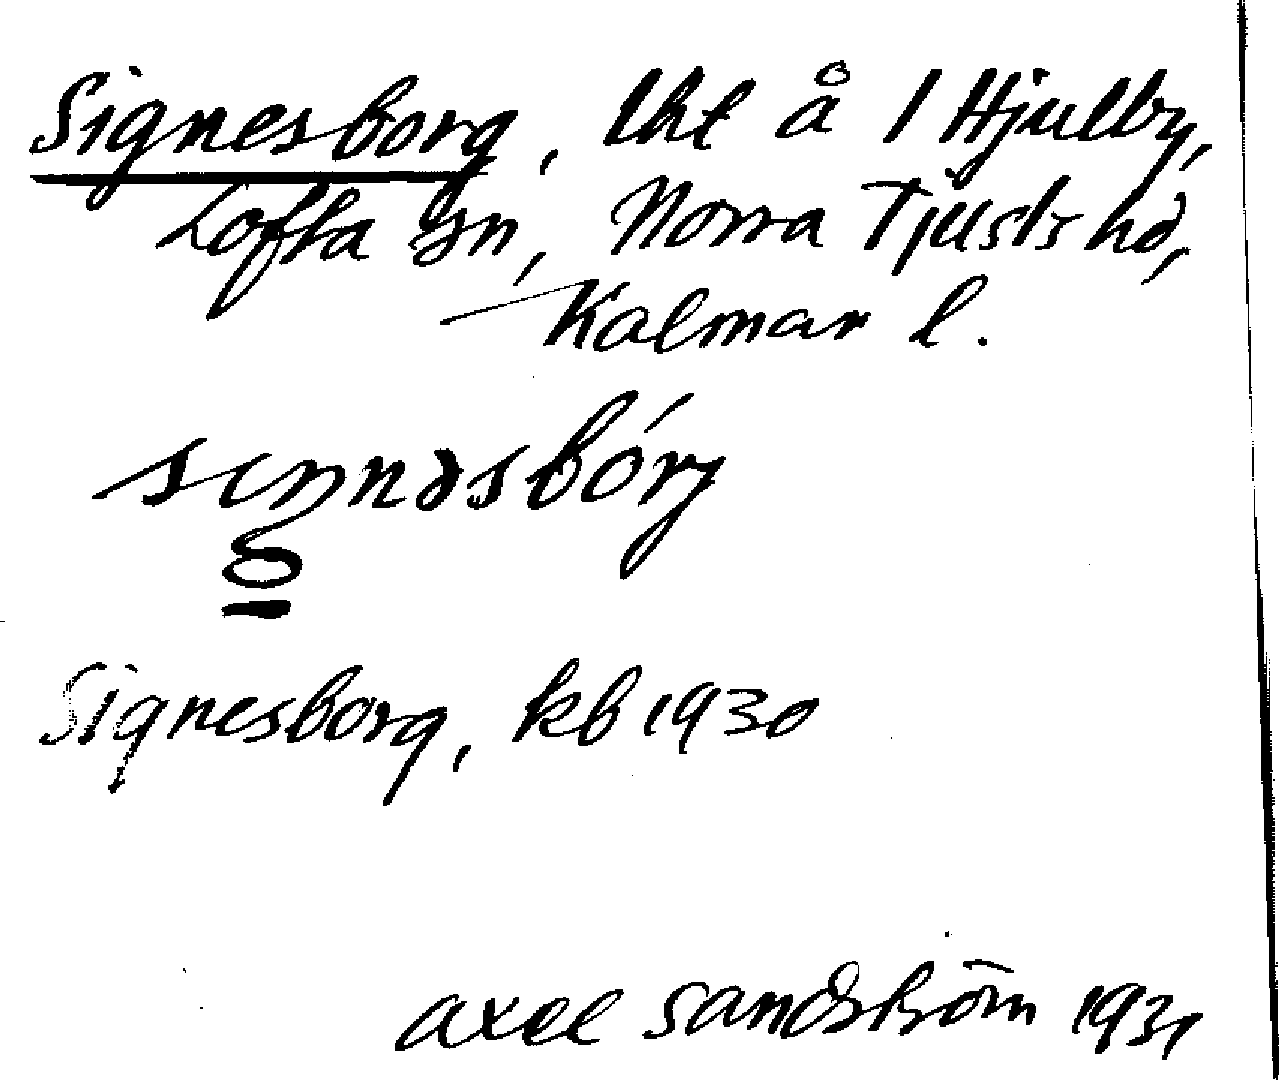 Signesborg, lht å 1 Hjulby,
Lofta sn, Norra Tjusts hd,
Kalmar l.
sıŋnəsbórj
Signesborg, kb 1930
Axel Sandström 1931